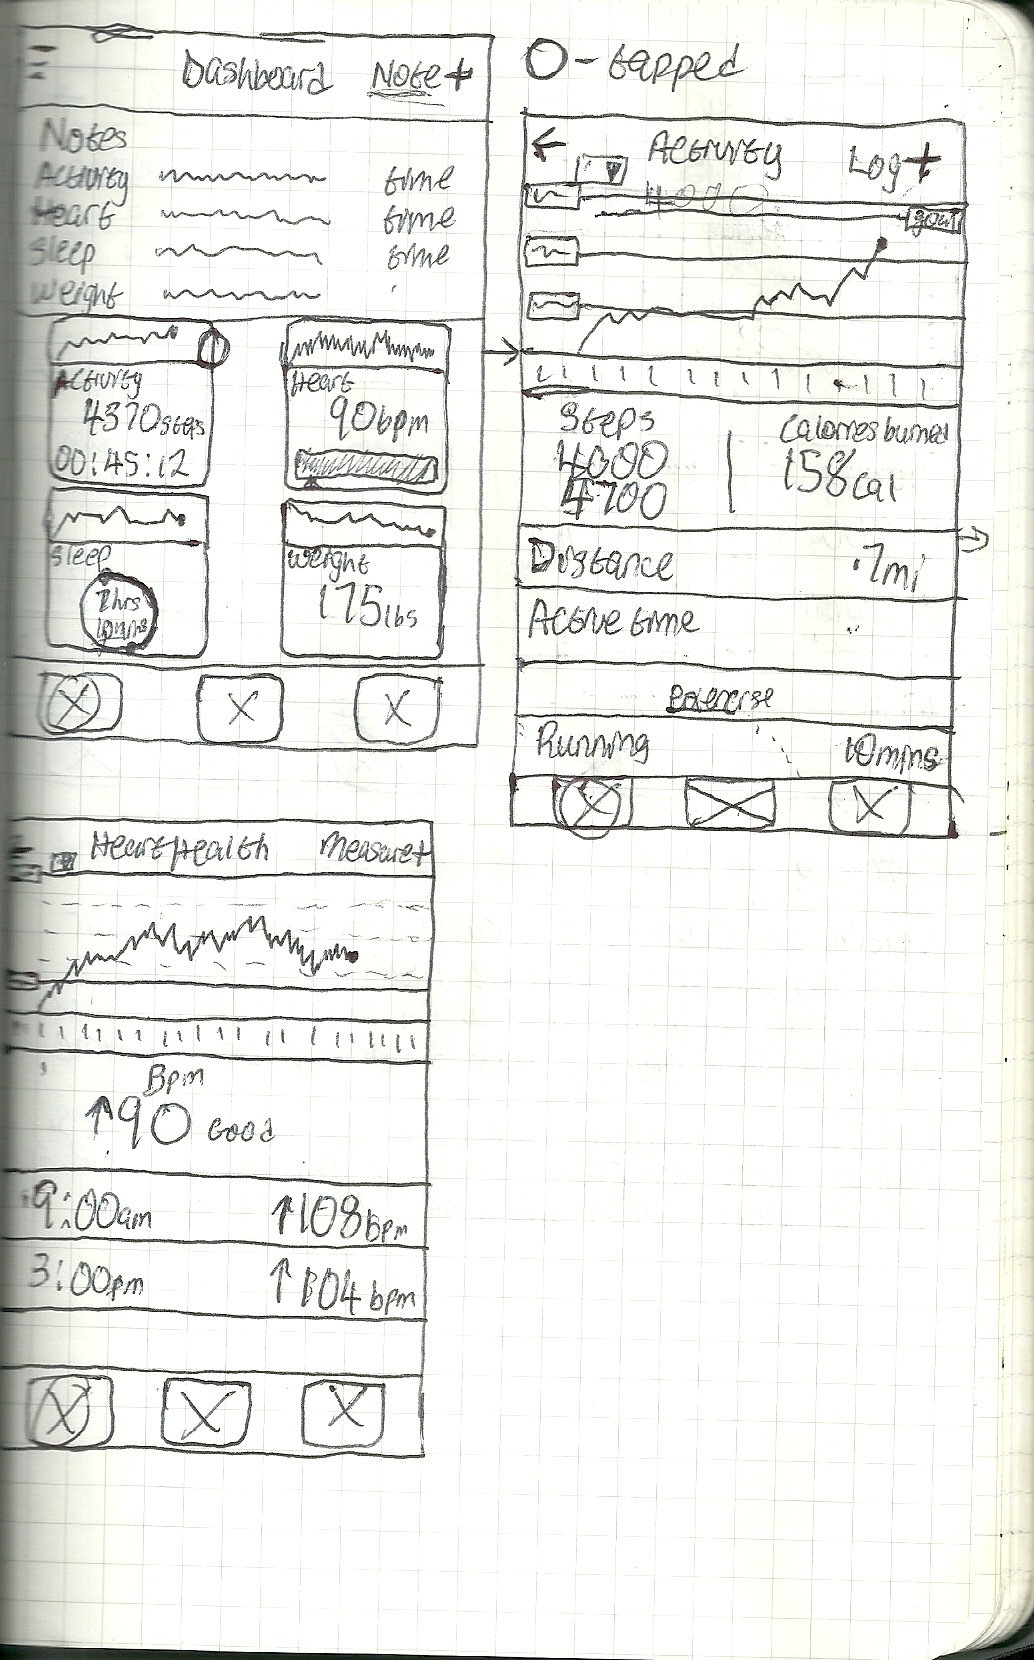 Dashboard Note+
Notes
Activity time
Heart time
Sleep time
Weight
Activity
4370 steps
00:45:12
Heart
90bpm
Sleep
7hrs
10mins
Weight
175lbs
O-tapped
Activity Log+
4000
goal
Steps
4000
4700
Calories burned
158cal
Distance .7mi
Active time
Exercise
Running 10mins
Heart Health Measure+
Bpm
↑90 Good
9:00am ↑108bpm
3:00pm ↑104bpm